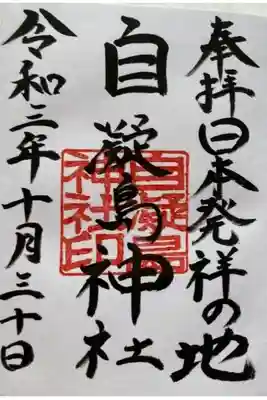 奉拝日本発祥の地
自凝島神社
自凝島神社印
令和三年十月三十日